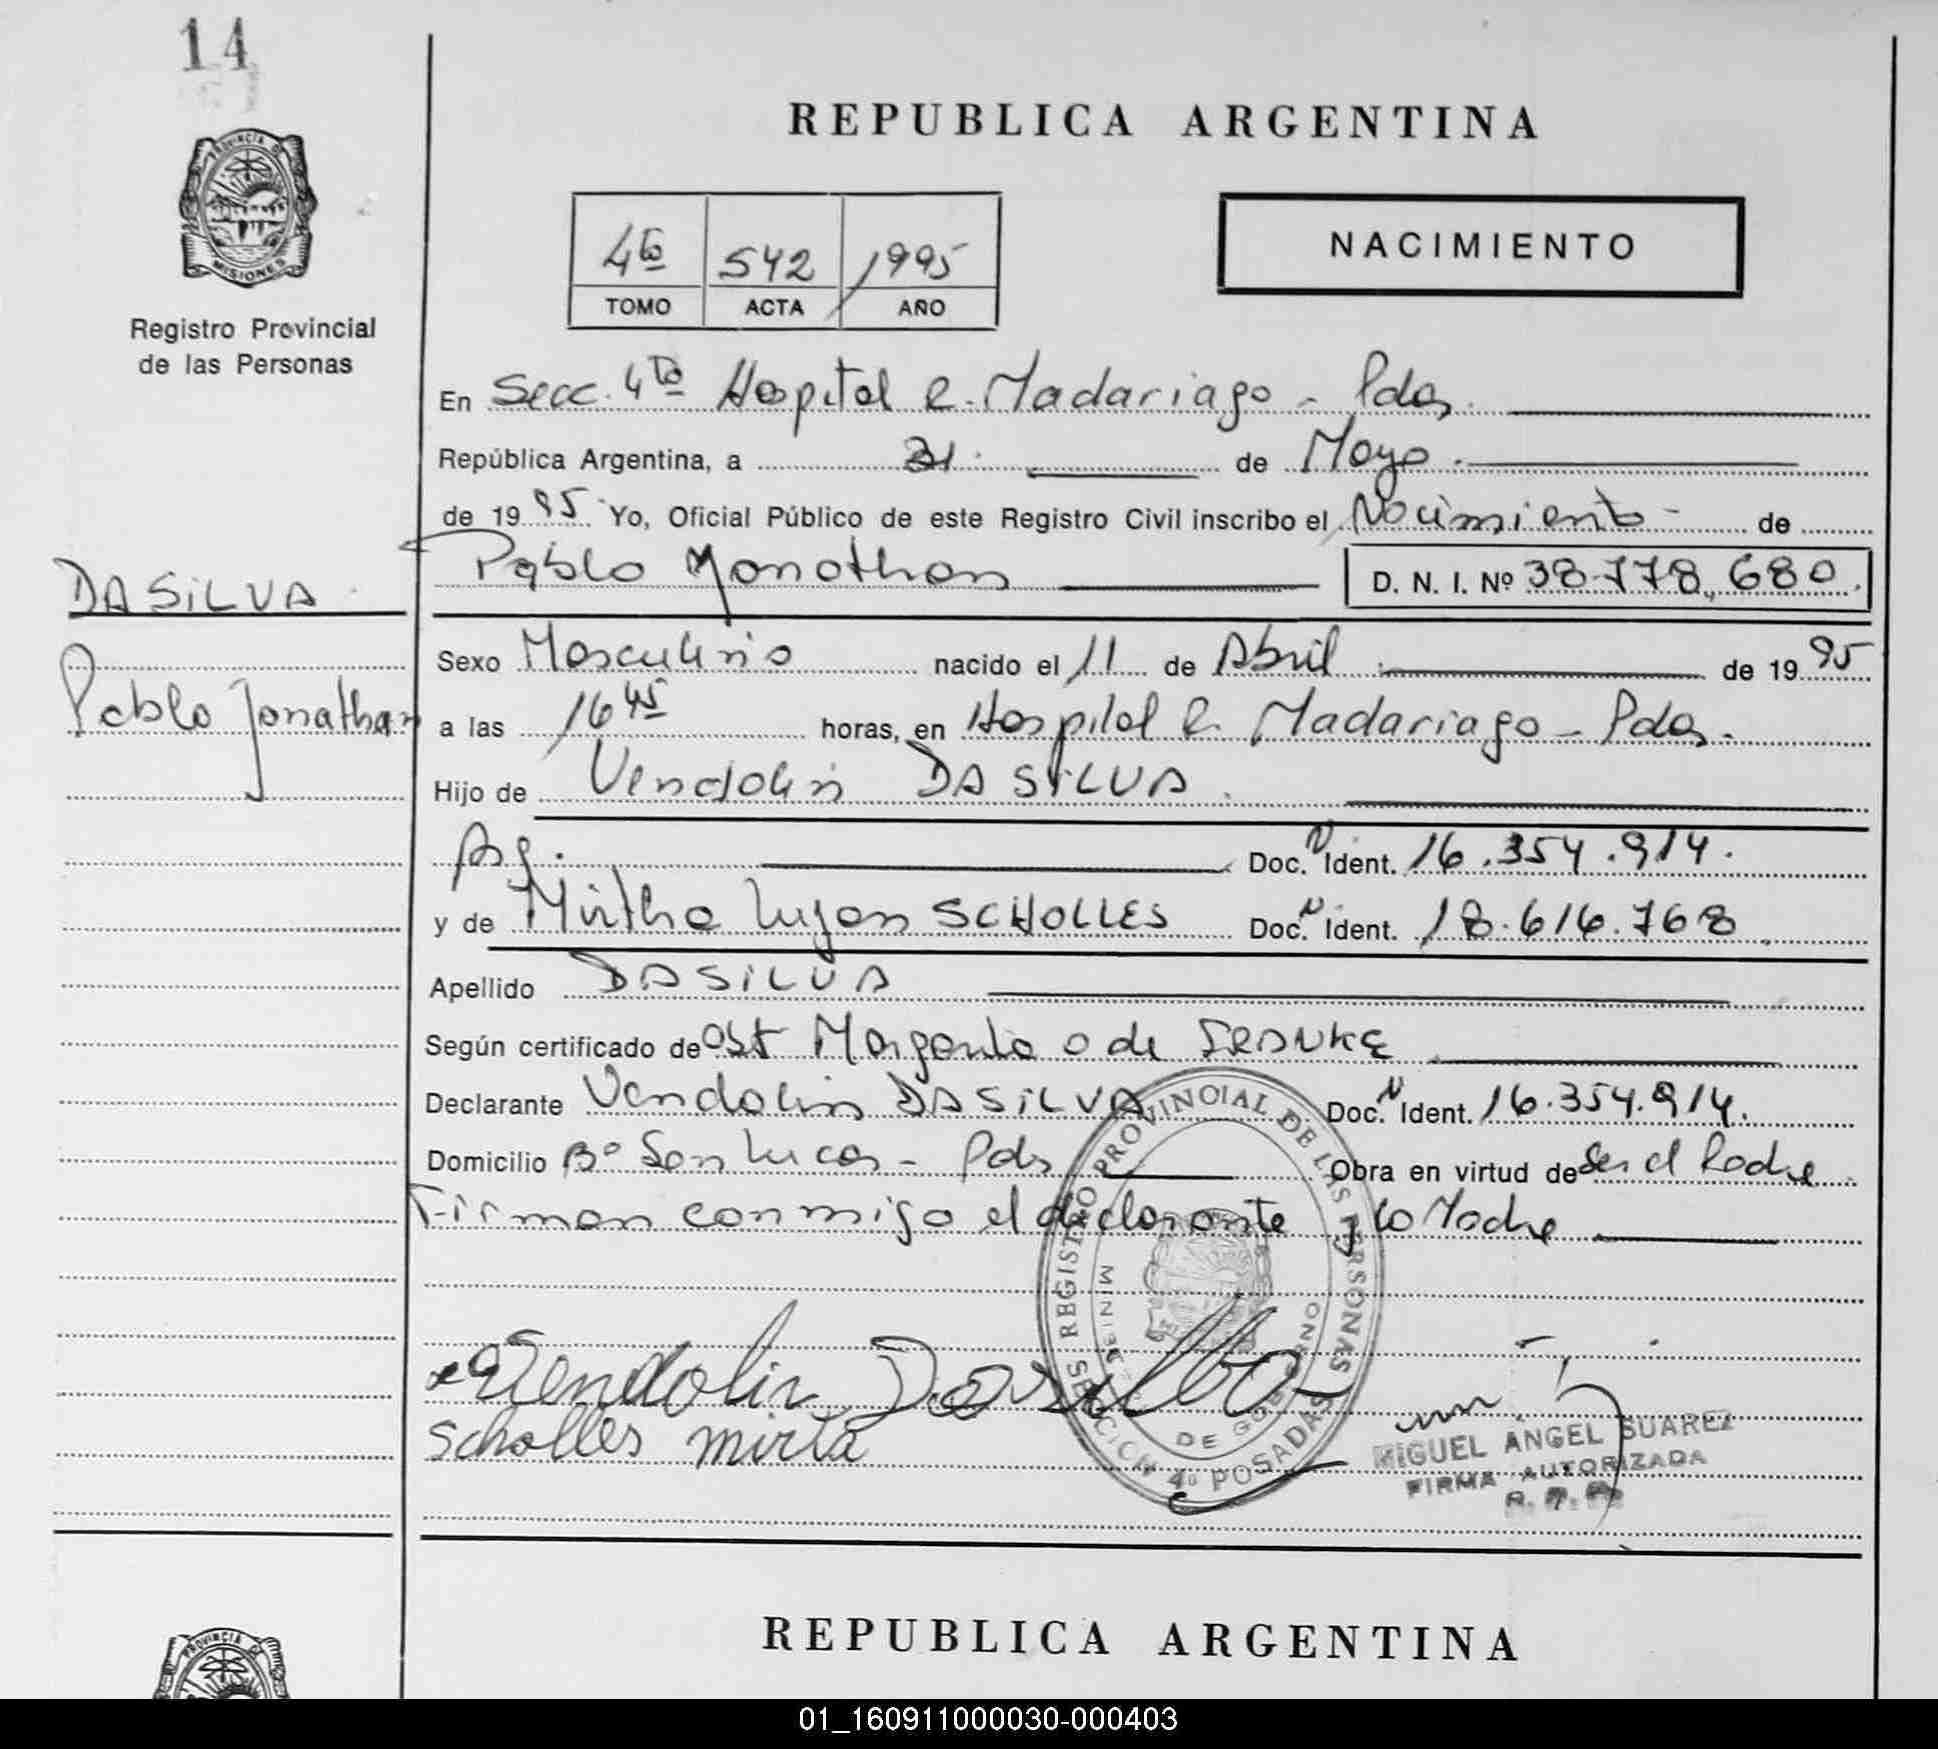 14
PROVINCIA DE
MISIONES
Registro Provincial
de las Personas
REPUBLICA ARGENTINA
4to 542 1995
TOMO ACTA AÑO
NACIMIENTO
En Secc. 4ta Hospital R. Madariaga - Pdas.
República Argentina, a 31 de Mayo.
de 1995. Yo, Oficial Público de este Registro Civil inscribo el Nacimiento - de
Pablo Yonathan D. N. I. Nº 38.778.680.
DA SILVA
Pablo Jonathan
Sexo Masculino nacido el 11 de Abril de 1995
a las 16 45 horas, en Hospital R. Madariaga - Pdas.
Hijo de Vendolin DA SILVA.
Arg. Doc. N Ident. 16.354.914.
y de Mirtha Lujan SCHOLLES Doc. N Ident. 18.616.768
Apellido DA SILVA
Según certificado de Obst Margarita o de
Declarante Vendolin DA SILVA Doc. N Ident. 16.354.914.
Domicilio Bº San Lucas - Pds Obra en virtud de Ser el Padre
Firman conmigo el declarante y la Madre
REGISTRO PROVINCIAL DE LAS PERSONAS
DE GOBIERNO
SECCION 4º POSADAS
Vendolin Da silba
Scholles mirta
MIGUEL ANGEL SUAREZ
FIRMA AUTORIZADA
REPUBLICA ARGENTINA
PROVINCIA DE
01_160911000030-000403